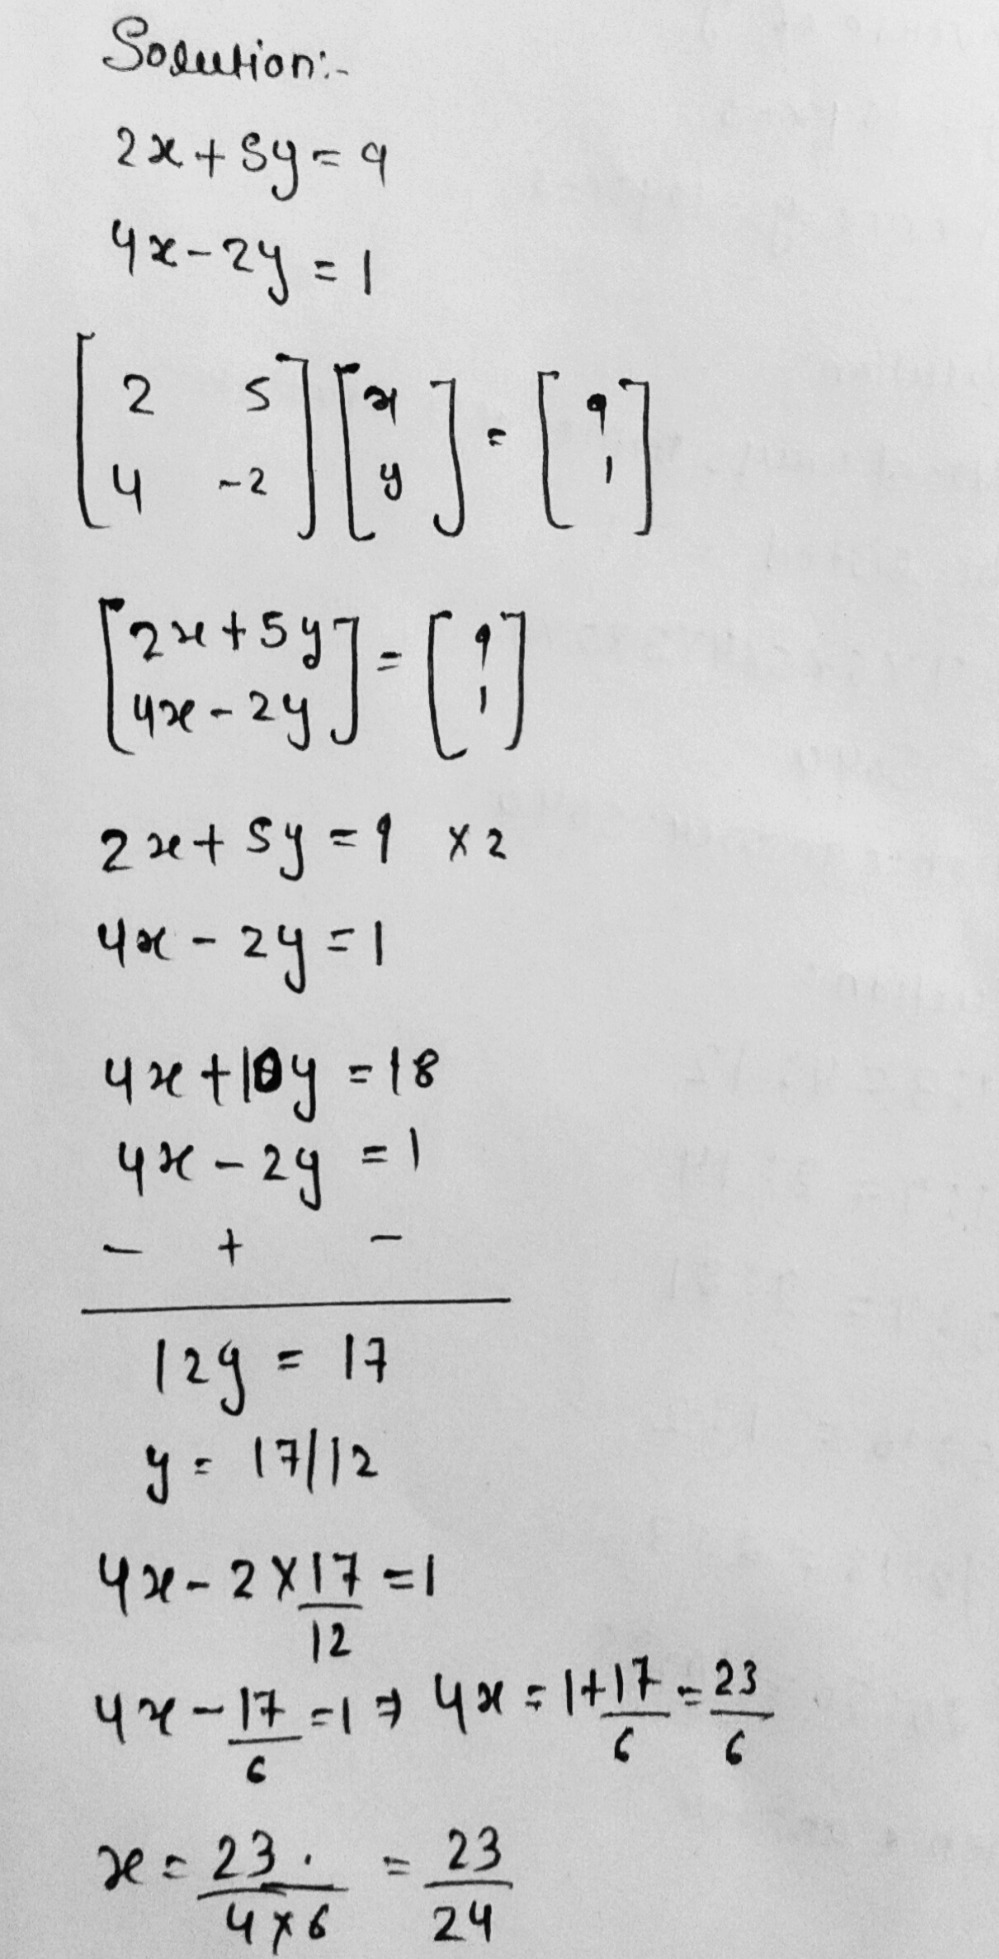 Solution:-
2x + 5y = 9
4x - 2y = 1
[2 5
4 -2] [x
y] = [9
1]
[2x + 5y
4x - 2y] = [9
1]
2x + 5y = 9 × 2
4x - 2y = 1
4x + 10y = 18
4x - 2y = 1
- + -
12y = 17
y = 17/12
4x - 2 × 17/12 = 1
4x - 17/6 = 1 ⇒ 4x = 1 + 17/6 = 23/6
x = 23/4×6 = 23/24